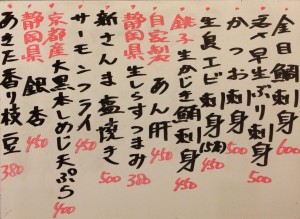 金目鯛刺身 600
寒さ早生ぶり刺身 500
かつお刺身 500
生良エビ刺身(5本) 450
銚子 生かじき鯛刺身 450
自家製 あん肝 450
静岡県 生しらすつまみ 380
新さんま塩焼き 500
サーモンフライ 450
京都産 大黒本しめじ天ぷら 400
静岡県 銀杏 450
あきた香り枝豆 380